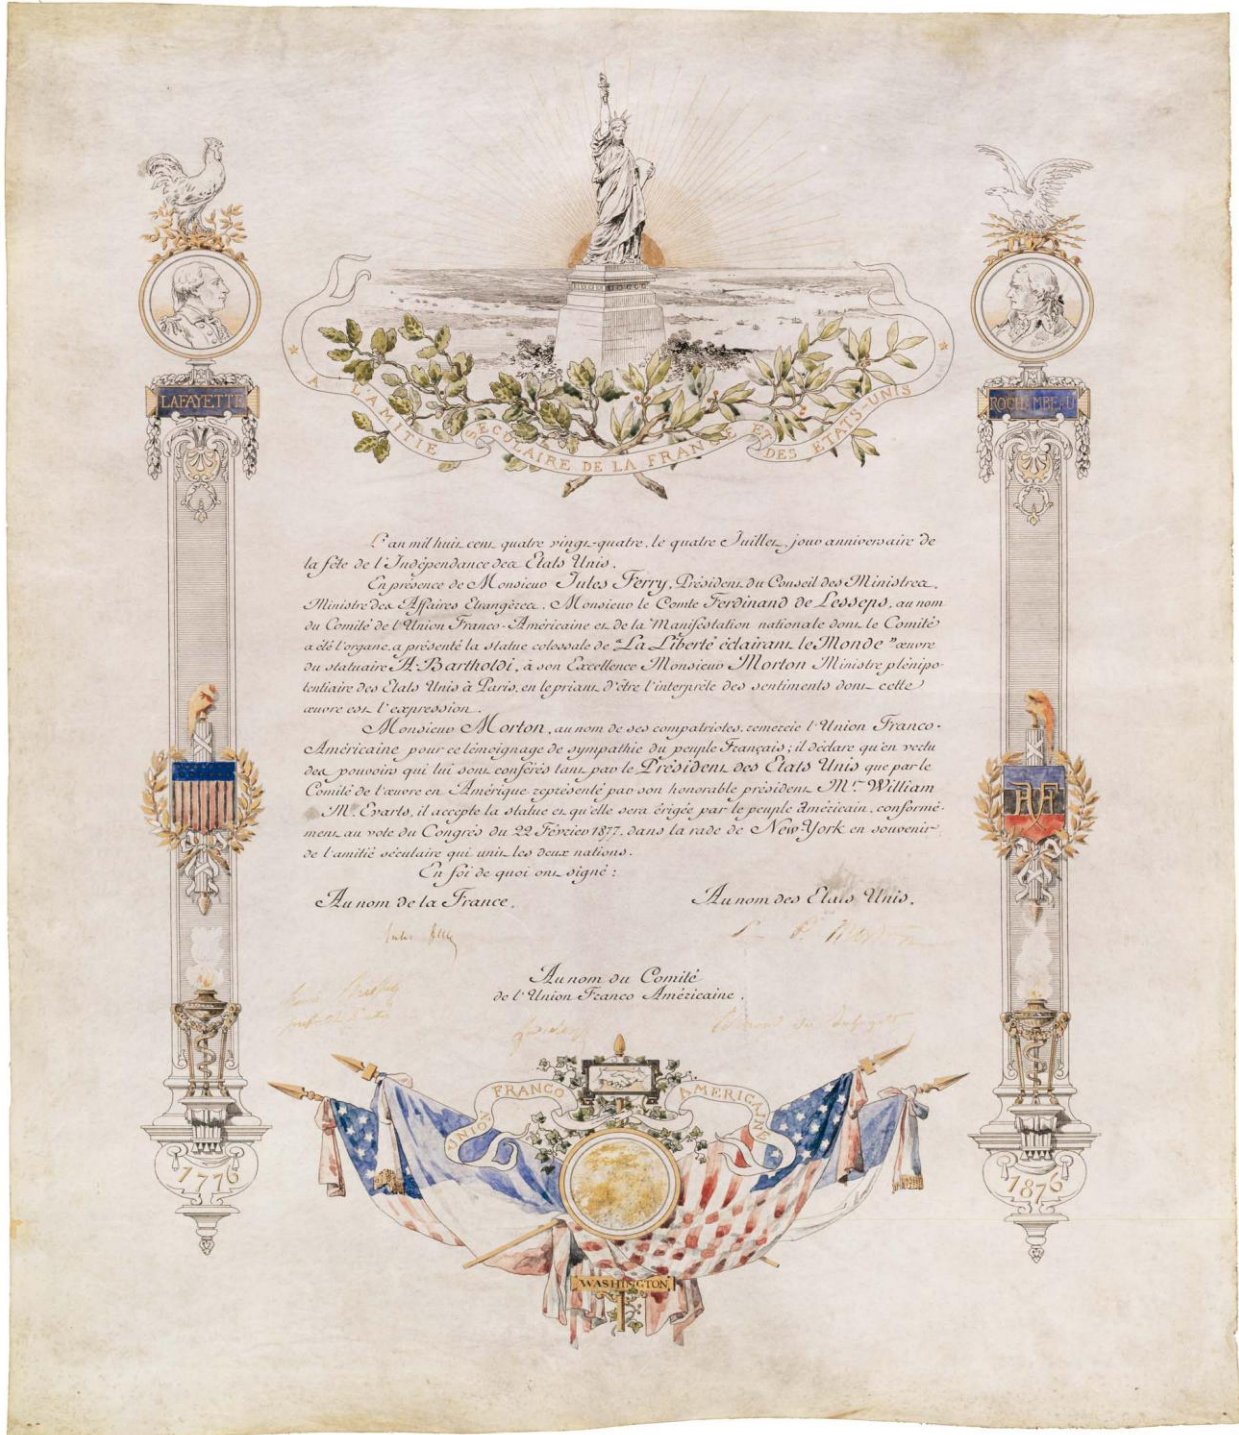 A L'AMITIÉ SÉCULAIRE DE LA FRANCE ET DES ÉTATS-UNIS
LAFAYETTE
ROCHAMBEAU
L'an mil huit cent quatre vingt-quatre, le quatre Juillet, jour anniversaire de
la fête de l'Indépendance des États Unis.
En présence de Monsieur Jules Ferry, Président du Conseil des Ministres,
Ministre des Affaires Étrangères. Monsieur le Comte Ferdinand de Lesseps, au nom
du Comité de l'Union Franco-Américaine et de la Manifestation nationale dont le Comité
a été l'organe, a présenté la statue colossale de "La Liberté éclairant le Monde" œuvre
du statuaire A. Bartholdi, à son Excellence Monsieur Morton Ministre plénipo-
tentiaire des États Unis à Paris, en le priant d'être l'interprète des sentiments dont cette
œuvre est l'expression.
Monsieur Morton, au nom de ses compatriotes, remercie l'Union Franco-
Américaine pour ce témoignage de sympathie du peuple Français; il déclare qu'en vertu
des pouvoirs qui lui sont conférés tant par le Président des États Unis que par le
Comité de l'œuvre en Amérique représenté par son honorable président Mr. William
M. Evarts, il accepte la statue et qu'elle sera érigée par le peuple américain, conformé-
ment au vote du Congrès du 22 Février 1877, dans la rade de New York en souvenir
de l'amitié séculaire qui unit les deux nations.
En foi de quoi ont signé:
Au nom de la France.
Au nom des États Unis.
Jules Ferry
L. P. Morton
Au nom du Comité
de l'Union Franco Américaine.
UNION FRANCO AMERICAINE
1776
1876
WASHINGTON